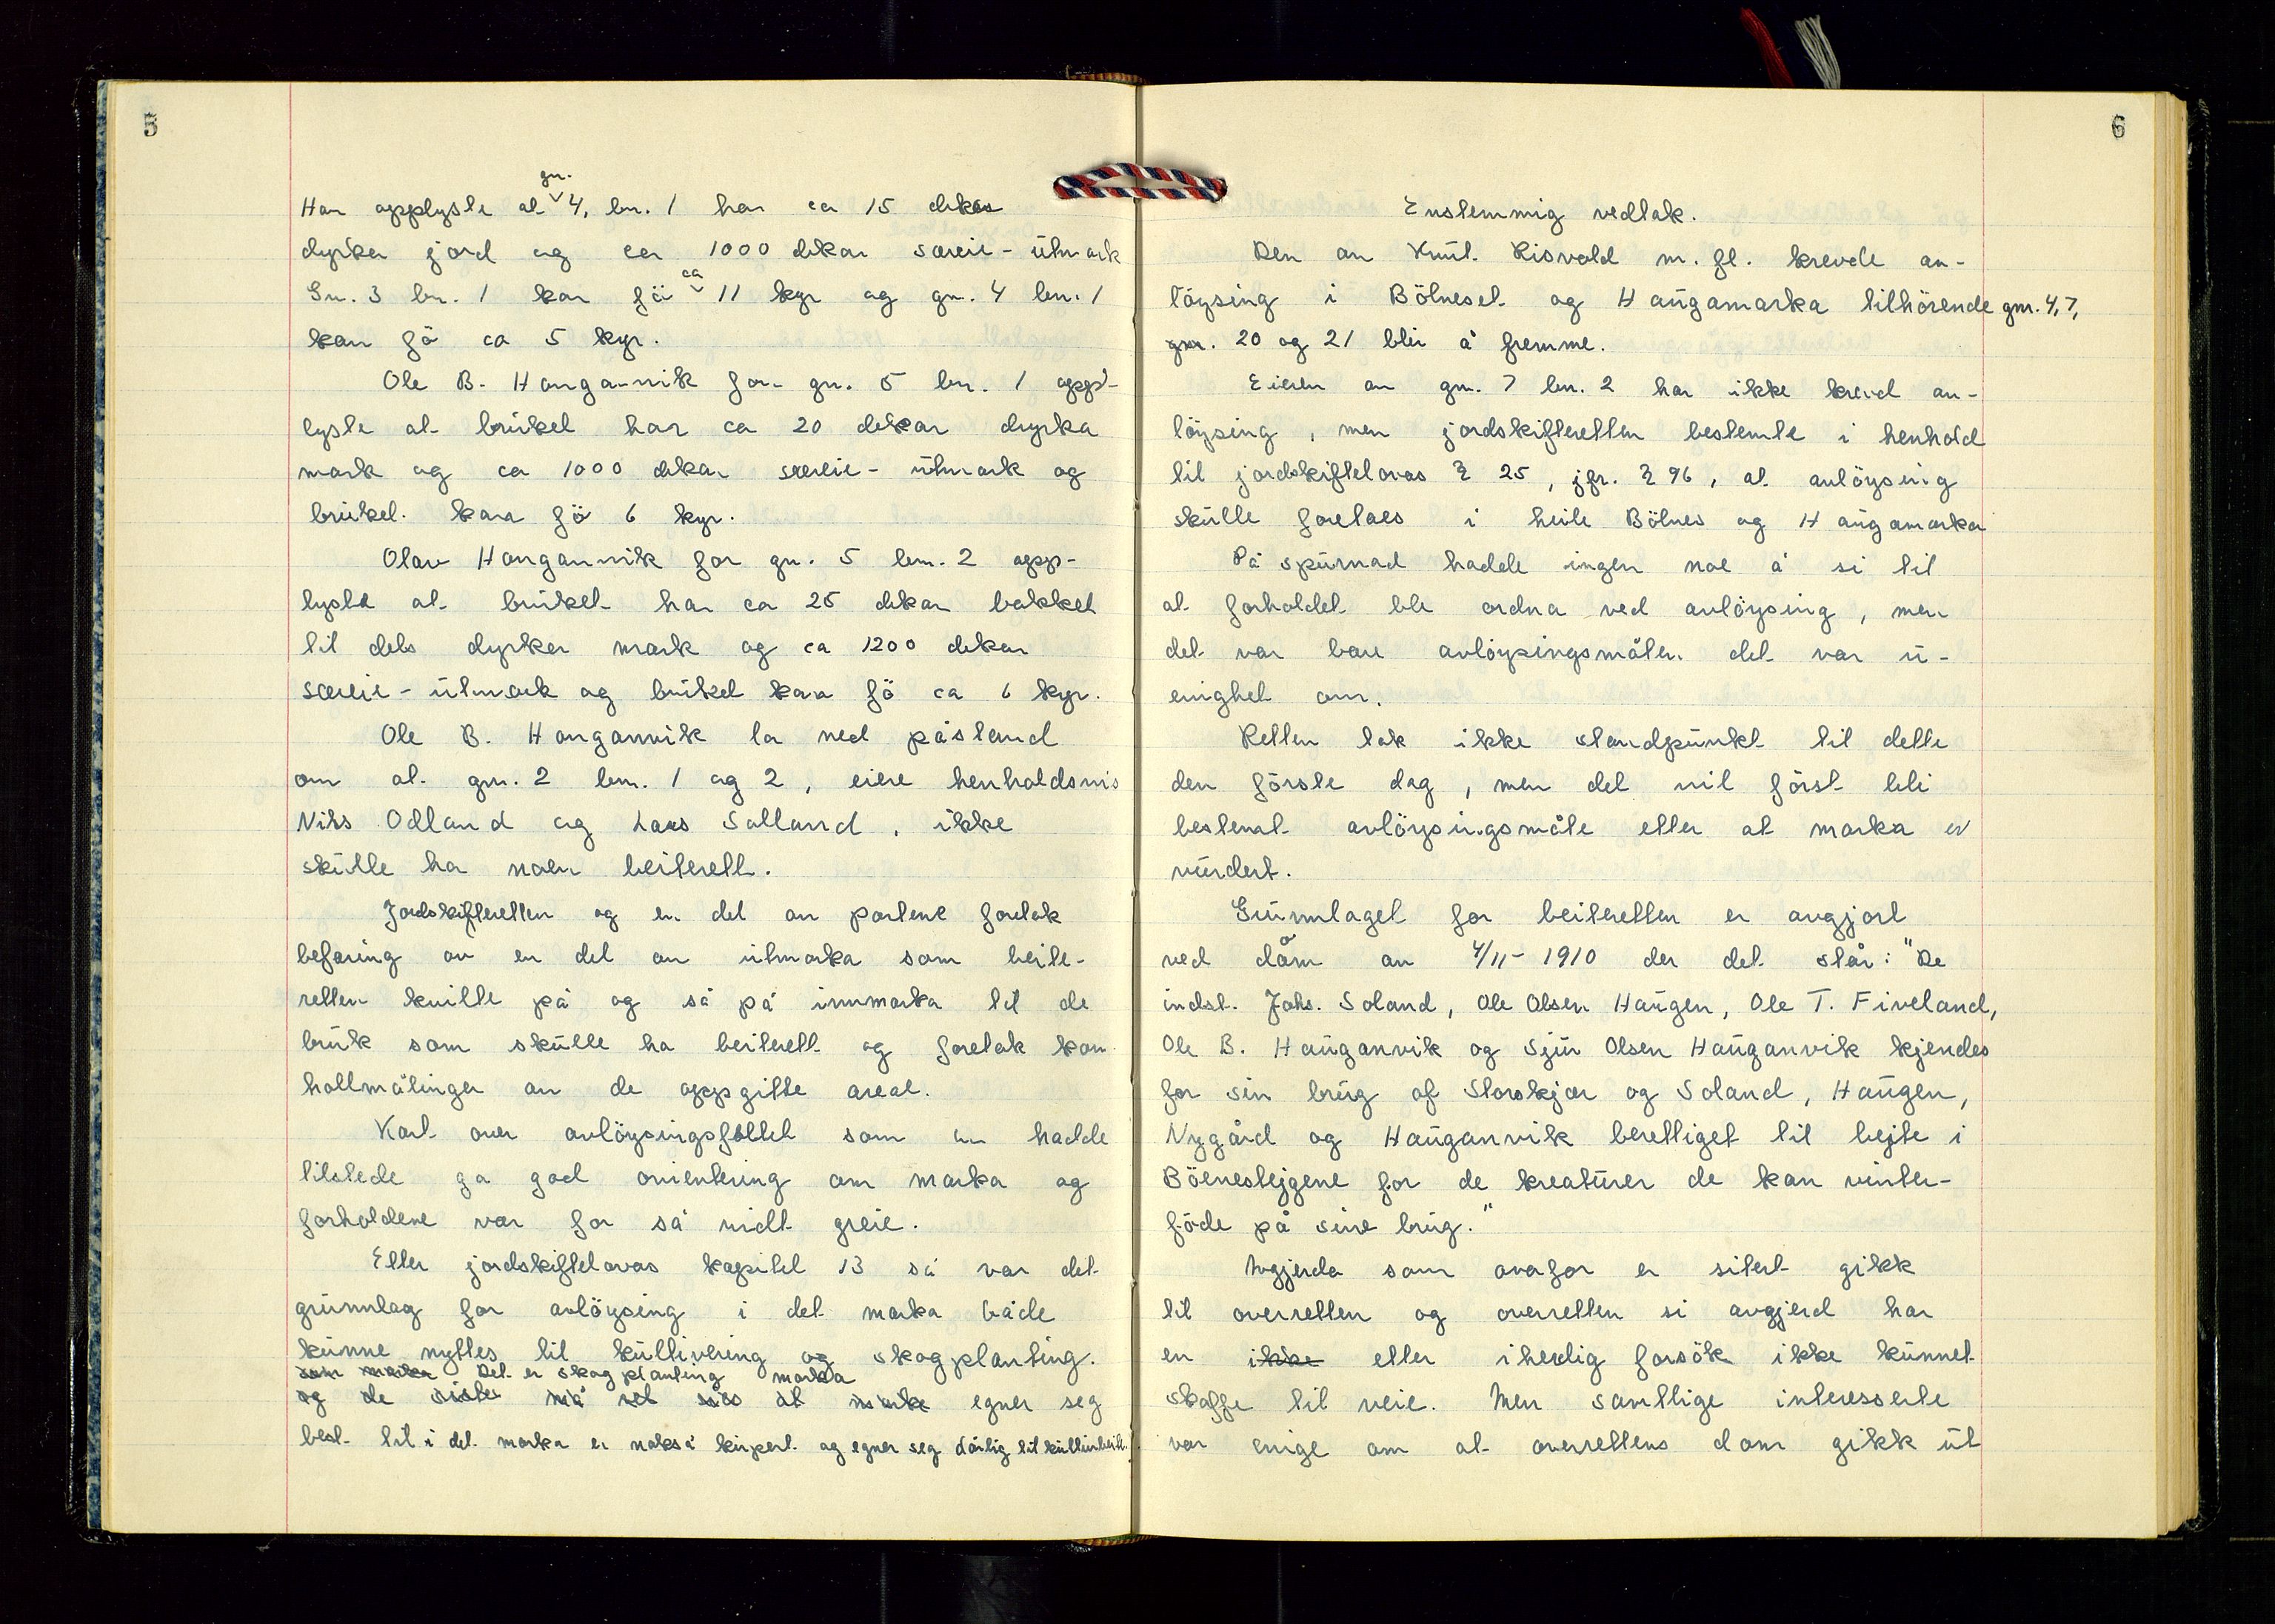 5
Han opplyste at gn. 4, bn. 1 har ca 15 dekar
dyrka jord og ca 1000 dekar særeie-utmark
Gn. 3 bn. 1 kan fø ca 11 kyr og gn. 4 bn. 1
kan fø ca 5 kyr.
Ole B. Hauganvik for gn. 5 bn. 1 opp-
lyste at bruket har ca 20 dekar dyrka
mark og ca 1000 dekar særeie-utmark og
bruket kan fø 6 kyr.
Olav Hauganvik for gn. 5 bn. 2 opp-
lyste at bruket har ca 25 dekar brakket
til dels dyrka mark og ca 1200 dekar
særeie-utmark og bruket kan fø ca 6 kyr.
Ole B. Hauganvik la ned påstand
om at gnr. 2 bnr. 1 og 2, eiere henholdsvis
Nils Odland og Lars Salland, ikke
skulle ha noen beiterett.
Jordskifteretten og en del av partene foretok
befaring av en del av utmarka som beite-
retten kvilte på og så på innmarka til de
bruk som skulle ha beiterett og foretok kon-
trollmålinger av de oppgitte areal.
Kart over avløysingsfeltet som en hadde
tilstede ga god orientering om marka og
forholdene var for så vidt greie.
Etter jordskiftelovas kapitel 13 så var det
grunnlag for avløysing i det marka både
kunne nyttes til kultivering og skogplanting.
som marka Det er skogplanting marka
og de siste må vel sies at marka egner seg
best til i det marka er nokså kupert og egner seg dårlig til kulturbeite.
6
Enstemmig vedtak.
Den av Knut Risvold m. fl. krevde av-
løysing i Bølneset og Haugamarka tilhørende gnr. 4, 7,
gnr. 20 og 21 blir å fremme.
Eieren av gnr. 7 bnr. 2 har ikke krevd av-
løysing, men jordskifteretten bestemte i henhold
til jordskiftelovas § 25, jfr. § 96, at avløysing
skulle foretaes i heile Bølnes og Haugamarka
På spurnad hadde ingen noe å si til
at forholdet ble ordna ved avløysing, men
det var bare avløysingsmåten det var u-
enighet om.
Retten tok ikke standpunkt til dette
den første dag, men det vil først bli
bestemt avløysingsmåte etter at marka er
vurdert.
Grunnlaget for beiteretten er avgjort
ved dom av 4/11-1910 der det står: "De
indst. Johs. Soland, Ole Olsen Haugen, Ole T. Fiveland,
Ole B. Hauganvik og Sjur Olsen Hauganvik kjendes
for sin brug af Storskjær og Soland, Haugen,
Nygård og Hauganvik berettiget til bejte i
Böenestejgene for de kreaturer de kan vinter-
føde på sine brug."
Avgjerda som ovafor er sitert gikk
til overretten og overretten si avgjerd har
en ikke etter iherdig forsök ikke kunnet
skaffe til veie. Men samtlige interesserte
var enige om at overrettens dom gikk ut